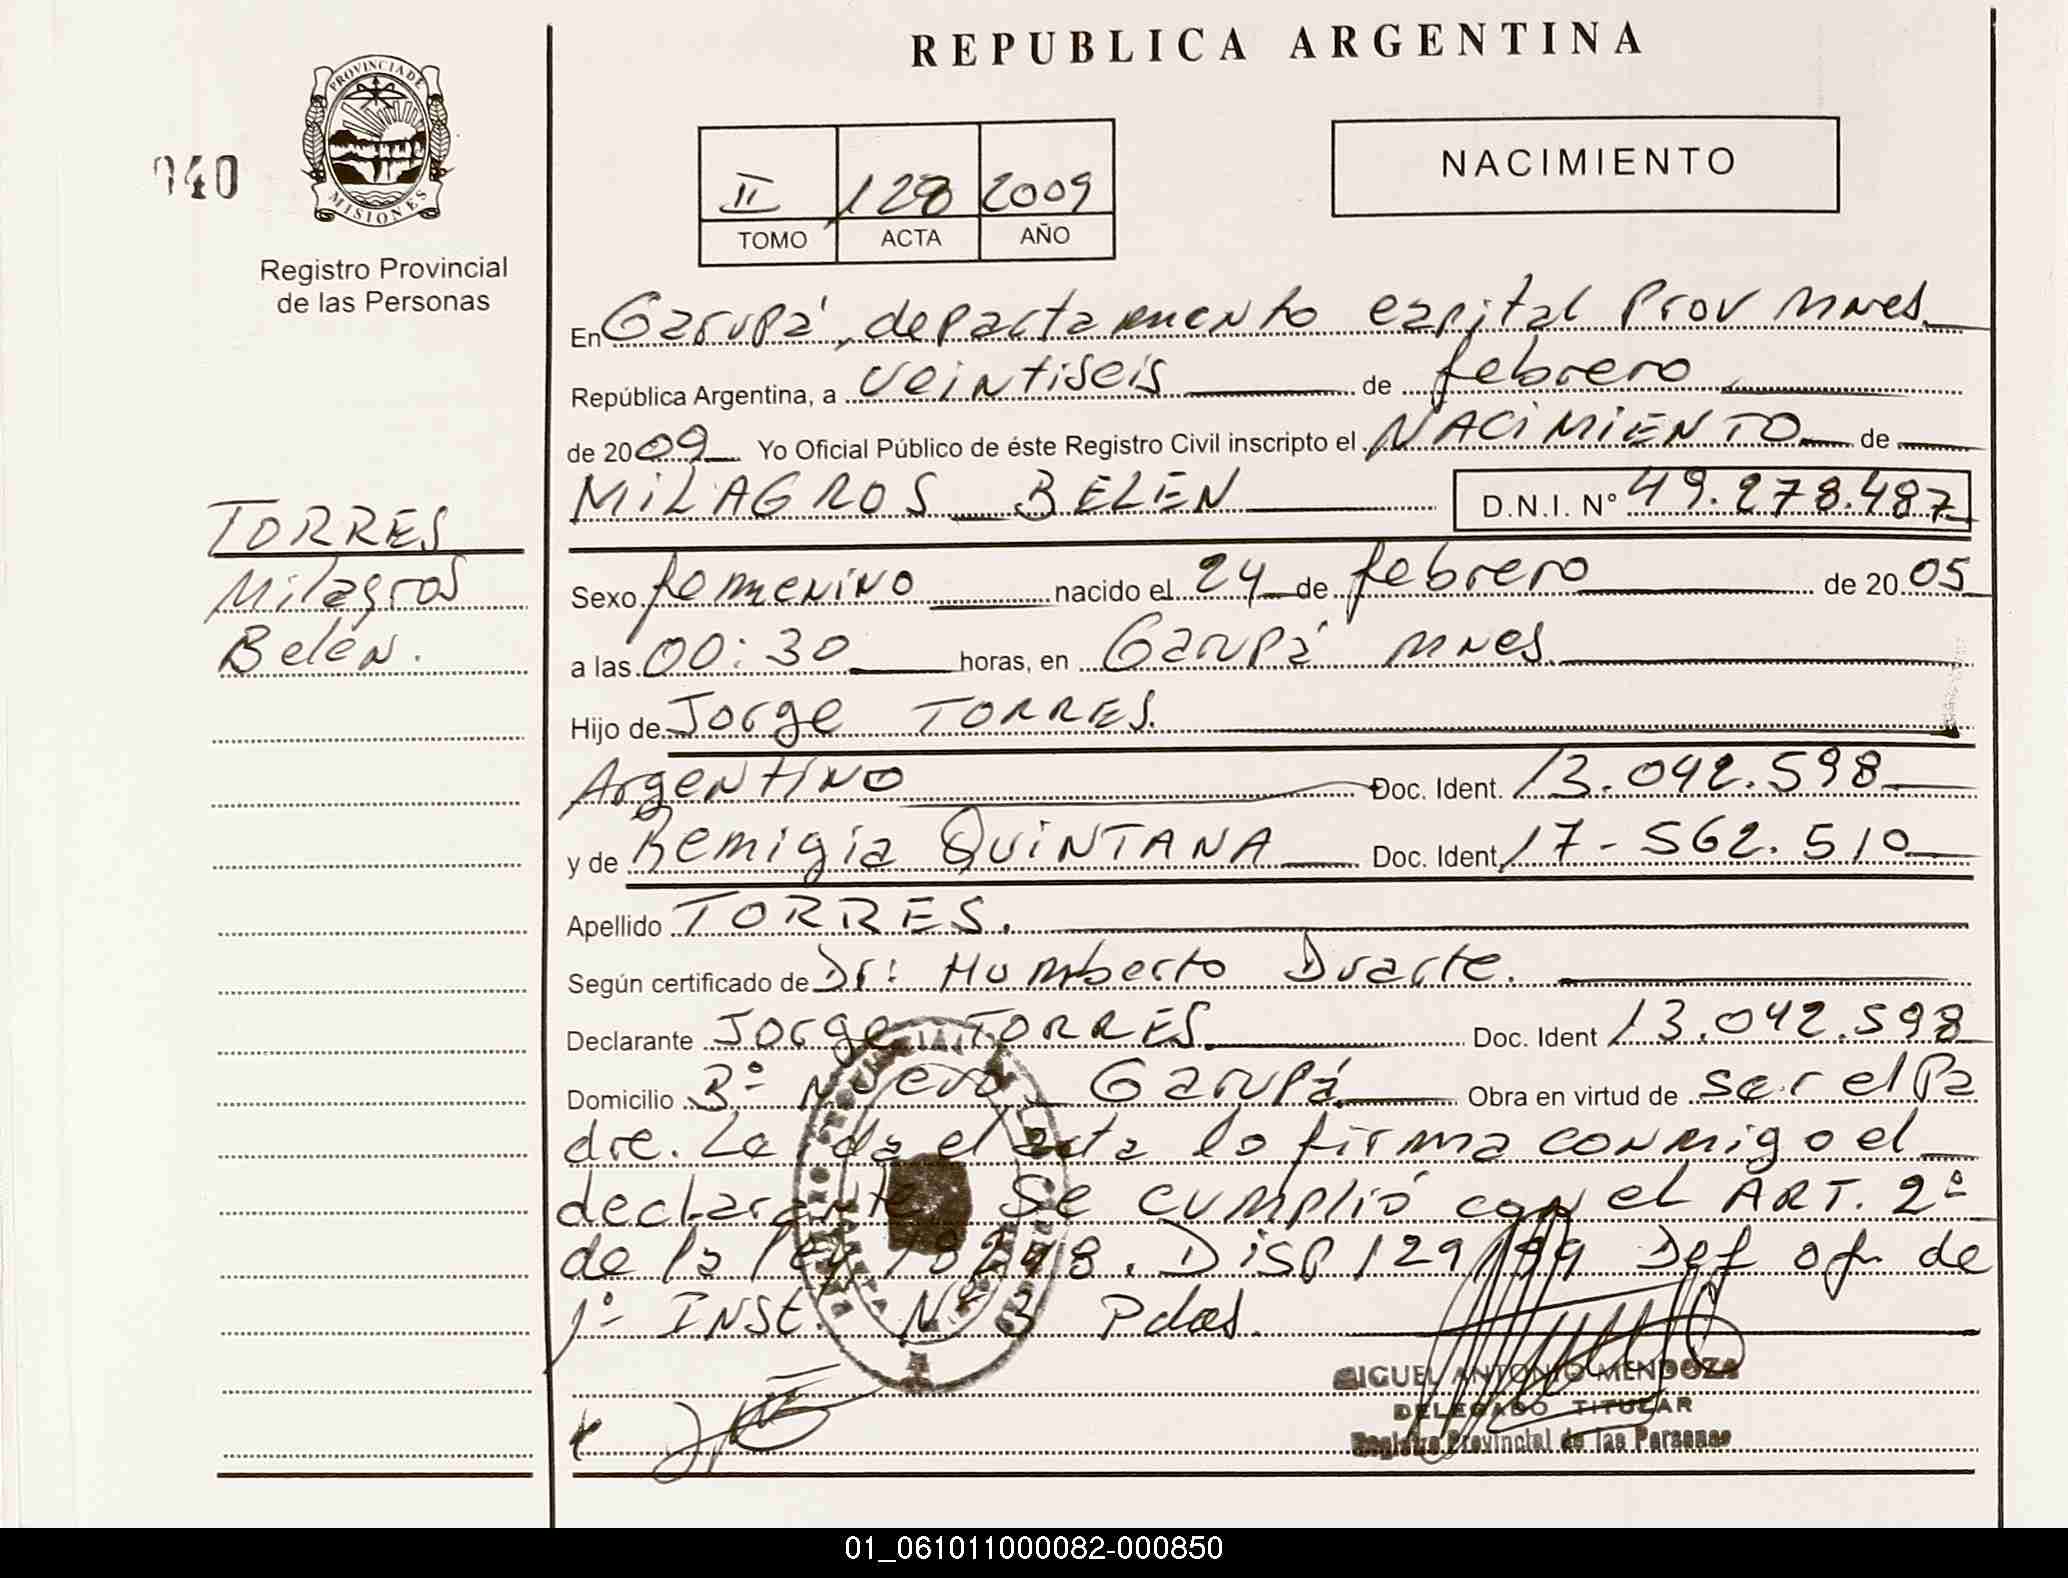 REPUBLICA ARGENTINA
PROVINCIA DE
MISIONES
040
Registro Provincial
de las Personas
II 128 2009
TOMO ACTA AÑO
NACIMIENTO
En Garupá, departamento capital Prov Mnes.
República Argentina, a veintiseis de febrero
de 2009 Yo Oficial Público de éste Registro Civil inscripto el NACIMIENTO de
MILAGROS BELEN D.N.I. Nº 49.278.487
TORRES
Milagros
Belén.
Sexo femenino nacido el 24 de febrero de 2005
a las 00:30 horas, en Garupá Mnes.
Hijo de Jorge TORRES.
Argentino Doc. Ident. 13.042.598
y de Remigia QUINTANA Doc. Ident. 17-562.510
Apellido TORRES.
Según certificado de Dr: Humberto Duarte.
Declarante Jorge TORRES. Doc. Ident 13.042.598
Domicilio Bº Nuevo Garupá Obra en virtud de ser el Pa
dre. Leída el acta lo firma conmigo el
declarante. Se cumplió con el ART. 2º
de la ley 18248. Disp 129/99 Def of de
1º Inst. Nº 3 Pdas.
MIGUEL ANTONIO MENDOZA
DELEGADO TITULAR
Registro Provincial de las Personas
01_061011000082-000850